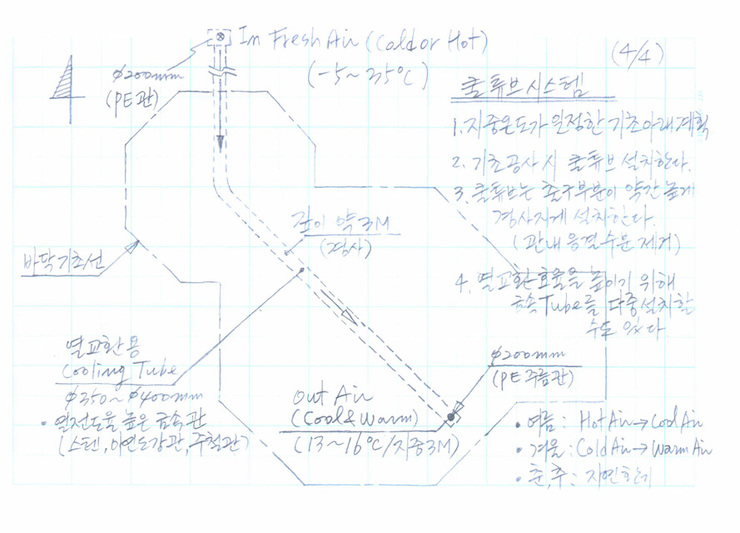 In Fresh Air (Cold or Hot)
(-5~35℃)
(4/4)
ø200mm
(PE관)
쿨튜브시스템
1. 지중온도가 일정한 기초아래 계획
2. 기초공사시 쿨튜브 설치한다.
3. 쿨튜브는 출구부분이 약간 높게
경사지게 설치한다.
(관내 응결수문제거)
4. 열교환효율을 높이기 위해
금속Tube를 다중설치할
수도 있다.
깊이 약 3M
(경사)
바닥기초선
열교환용
Cooling Tube
ø350~ø400mm
• 열전도율 높은 금속관
(스텐, 아연도강관, 주철관)
Out Air
(Cool & Warm)
(13~16℃/지중3M)
ø200mm
(PE주름관)
• 여름: Hot Air→Cool Air
• 겨울: Cold Air→Warm Air
• 춘,추: 자연환기